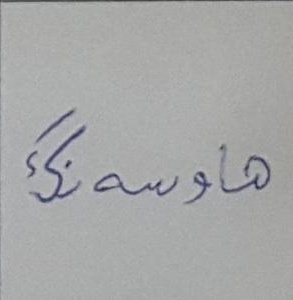 هاوسەنگی